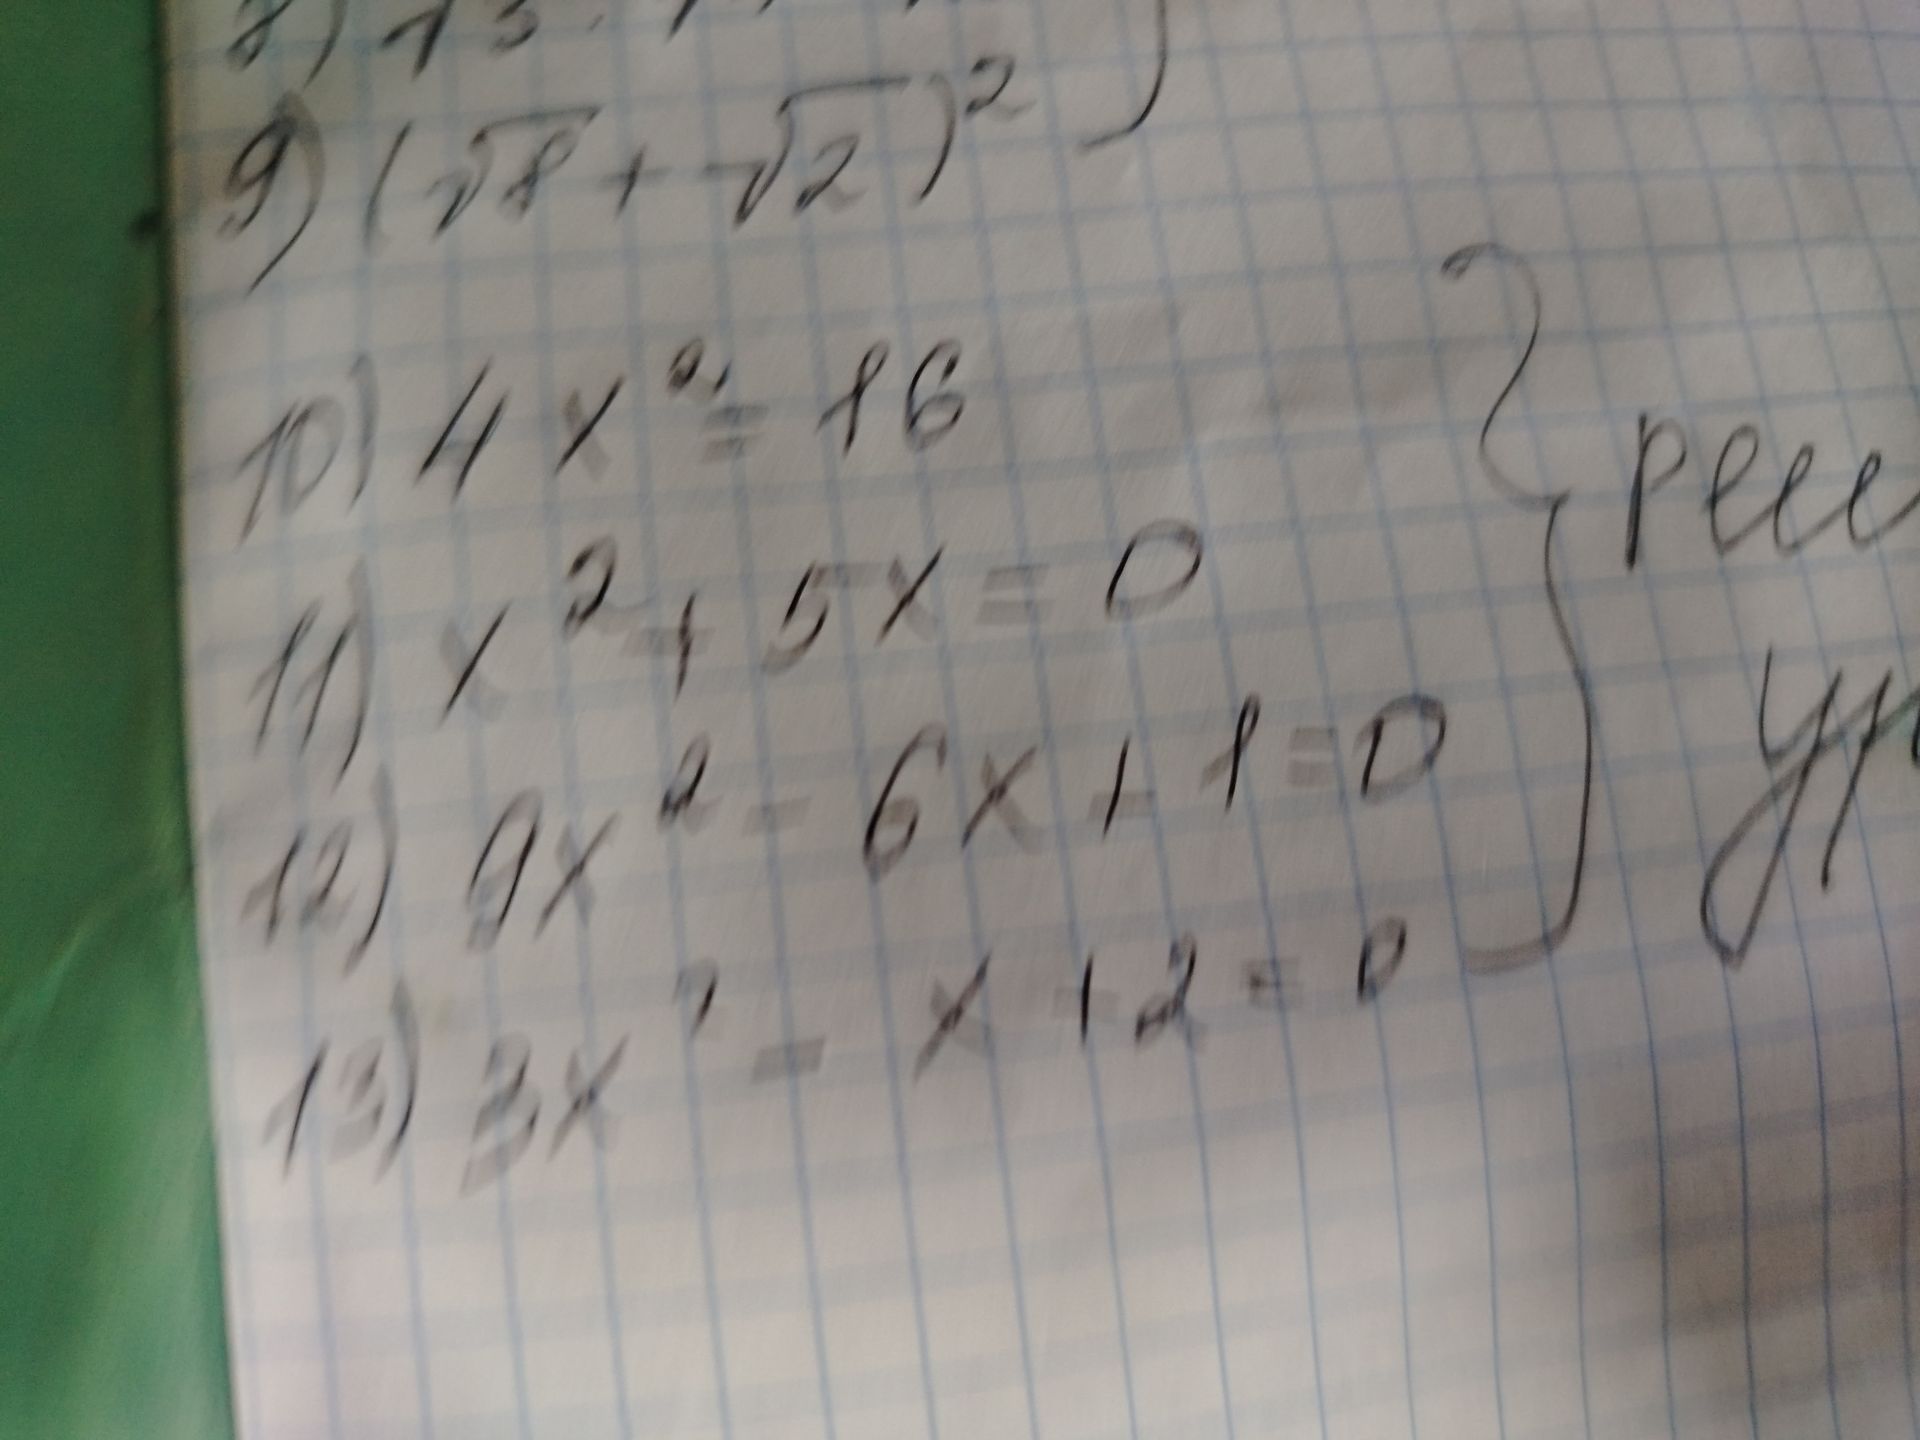 9) (√8 + √2)²
10) 4x² = 16
11) x² + 5x = 0
12) 9x² - 6x + 1 = 0
13) 3x² - x + 2 = 0